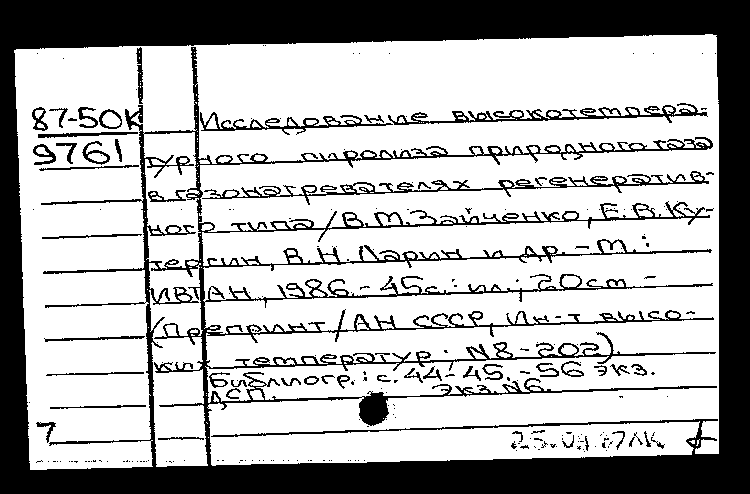 87-50К Исследование высокотемпера-
9761 турного пиролиза природного газа
в газонагревателях регенератив-
ного типа / В. М. Зайченко, Е. В. Ку-
тергин, В. Н. Ларин и др. - М. :
ИВТАН, 1986. - 45с. : ил.; 20cm -
(Препринт / АН СССР, Ин-т высо-
ких температур. N8-202).
Библиогр. : с. 44-45. - 56 экз.
ДСП. Экз. N6.
7